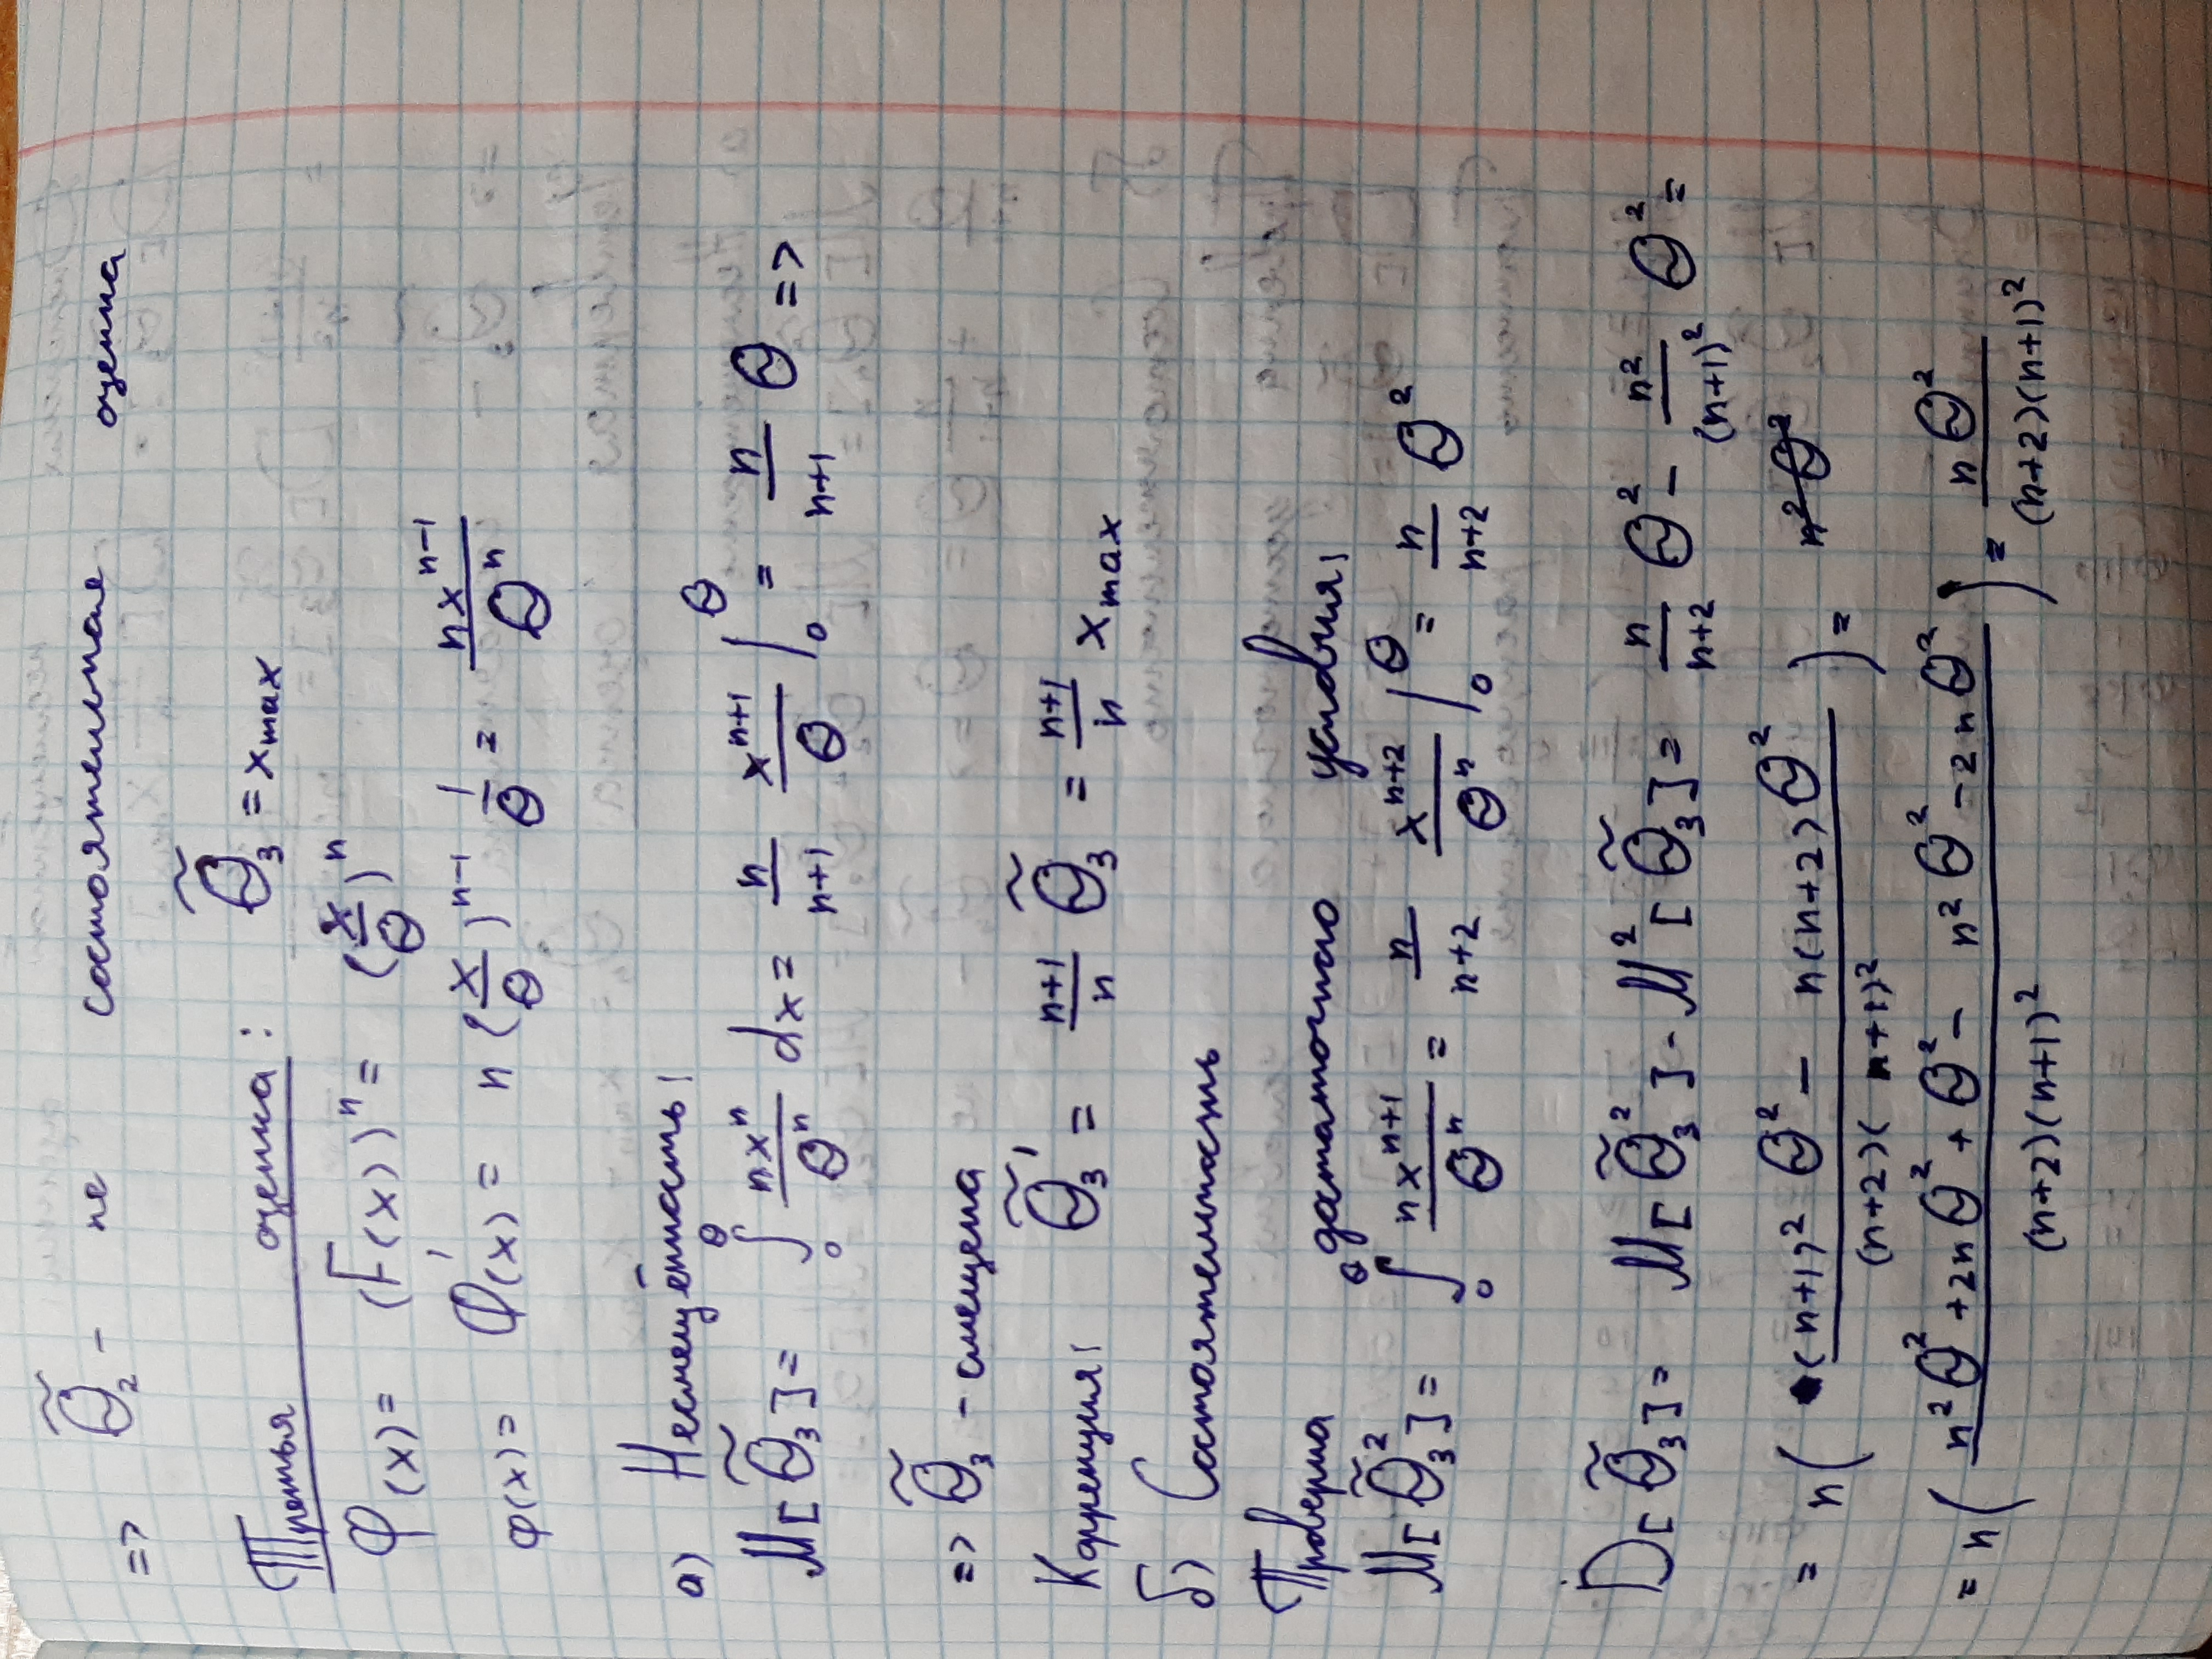 => Θ̃₂ - не состоятельная оценка
Третья оценка: Θ̃₃ = xmax
Φ(x) = (F(x))ⁿ = (x/Θ)ⁿ
φ(x) = Φ'(x) = n (x/Θ)ⁿ⁻¹ 1/Θ = nxⁿ⁻¹/Θⁿ
а) Несмещённость:
M[Θ̃₃] = ∫₀^Θ nxⁿ/Θⁿ dx = n/(n+1) xⁿ⁺¹/Θ |₀^Θ = n/(n+1) Θ =>
=> Θ̃₃ - смещена
Коррекция: Θ̃₃' = (n+1)/n Θ̃₃ = (n+1)/n xmax
б) Состоятельность
Проверка достаточного условия:
M[Θ̃₃²] = ∫₀^Θ nxⁿ⁺¹/Θⁿ = n/(n+2) xⁿ⁺²/Θⁿ |₀^Θ = n/(n+2) Θ²
D[Θ̃₃] = M[Θ̃₃²] - M²[Θ̃₃] = n/(n+2) Θ² - n²/(n+1)² Θ² =
= n( ((n+1)² Θ² - n(n+2)Θ²)/((n+2)(n+1)²) ) = n²Θ²
= n( (n²Θ² + 2nΘ² + Θ² - n²Θ² - 2nΘ²)/((n+2)(n+1)²) ) = nΘ²/((n+2)(n+1)²)